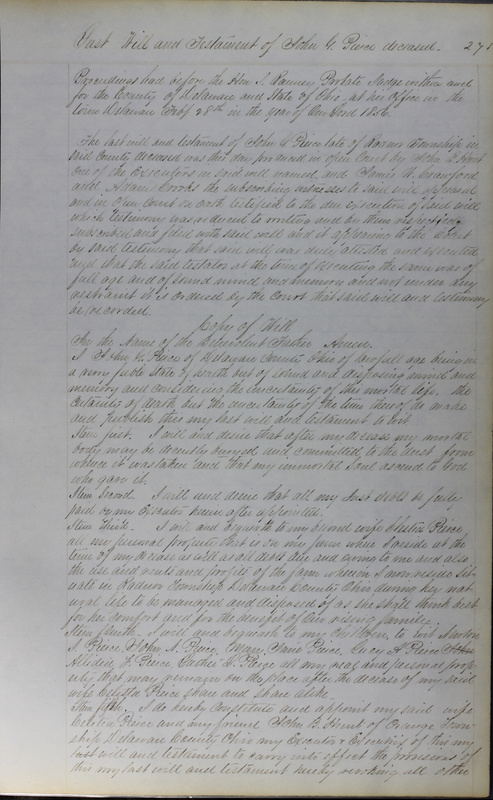 Last Will and Testament of John G. Pierce deceased. 275
Proceedings had before the Hon. T. Ranney Probate Judge within and
for the County of Delaware and State of Ohio, at his office in the
town Delaware Feby 28th in the year of Our Lord 1856.
The last will and testament of John G Pierce late of Township in
said County deceased was this day produced in open Court by John B. Hunt
one of the Executors in said will named, and James W. Crawford
and Adam Brooks the subscribing witnesses to said will appeared
and in Open Court on oath testified to the due execution of said will
which testimony was reduced to writing and by them
subscribed and filed with said will and it appearing to the Court
by said testimony that said will was duly attested and executed
and that the said testator at the time of executing the same was of
full age and of sound mind and memory and not under any
restraint it is ordered by the Court that said will and testimony
be recorded.
Copy of Will
In the Name of the Benevolent Father Amen.
I John G. Pierce of Delaware County Ohio of lawfull age being in
a very feble State of health but of sound and disposing mind and
memory and considering the uncertainty of this mortal life, the
certainty of death but the uncertainty of the time thereof do make
and publish this my last will and testament to wit
Item first. I will and desire that after my decease my mortal
body may be decently buryed and committed to the dust from
whence it was taken and that my immortal Soul ascend to God
who gave it.
Item Second. I will and desire that all my Just debts be fully
paid by my Executor herein after appointed.
Item Third. I will and bequeath to my beloved wife Celestia Pierce
all my personal property that is on my farm where I reside at the
time of my decease as well as all debts due and owing to me and also
the use and rents and profits of the farm whereon I now reside sit-
uate in Radnor Township Delaware County Ohio during her nat-
ural life to be managed and disposed of as she shall think best
for her comfort and for the benefit of our rising family.
Item fourth. I will and bequeath to my Children, to wit Newton
J. Pierce, John N. Pierce, Mary Jane Pierce, Lucy A Pierce
F. Pierce H. Pierce all my real and personal prop-
erty that may remain on the place after the decease of my said
wife Celestia Pierce share and share alike.
Item fifth. I do hereby constitute and appoint my said wife
Celestia Pierce and my friend John B. Hunt of Orange Town-
ship Delaware County Ohio my Executor & Executrix of this my
last will and testament to carry into effect the provisions of
this my last will and testament hereby revoking all other